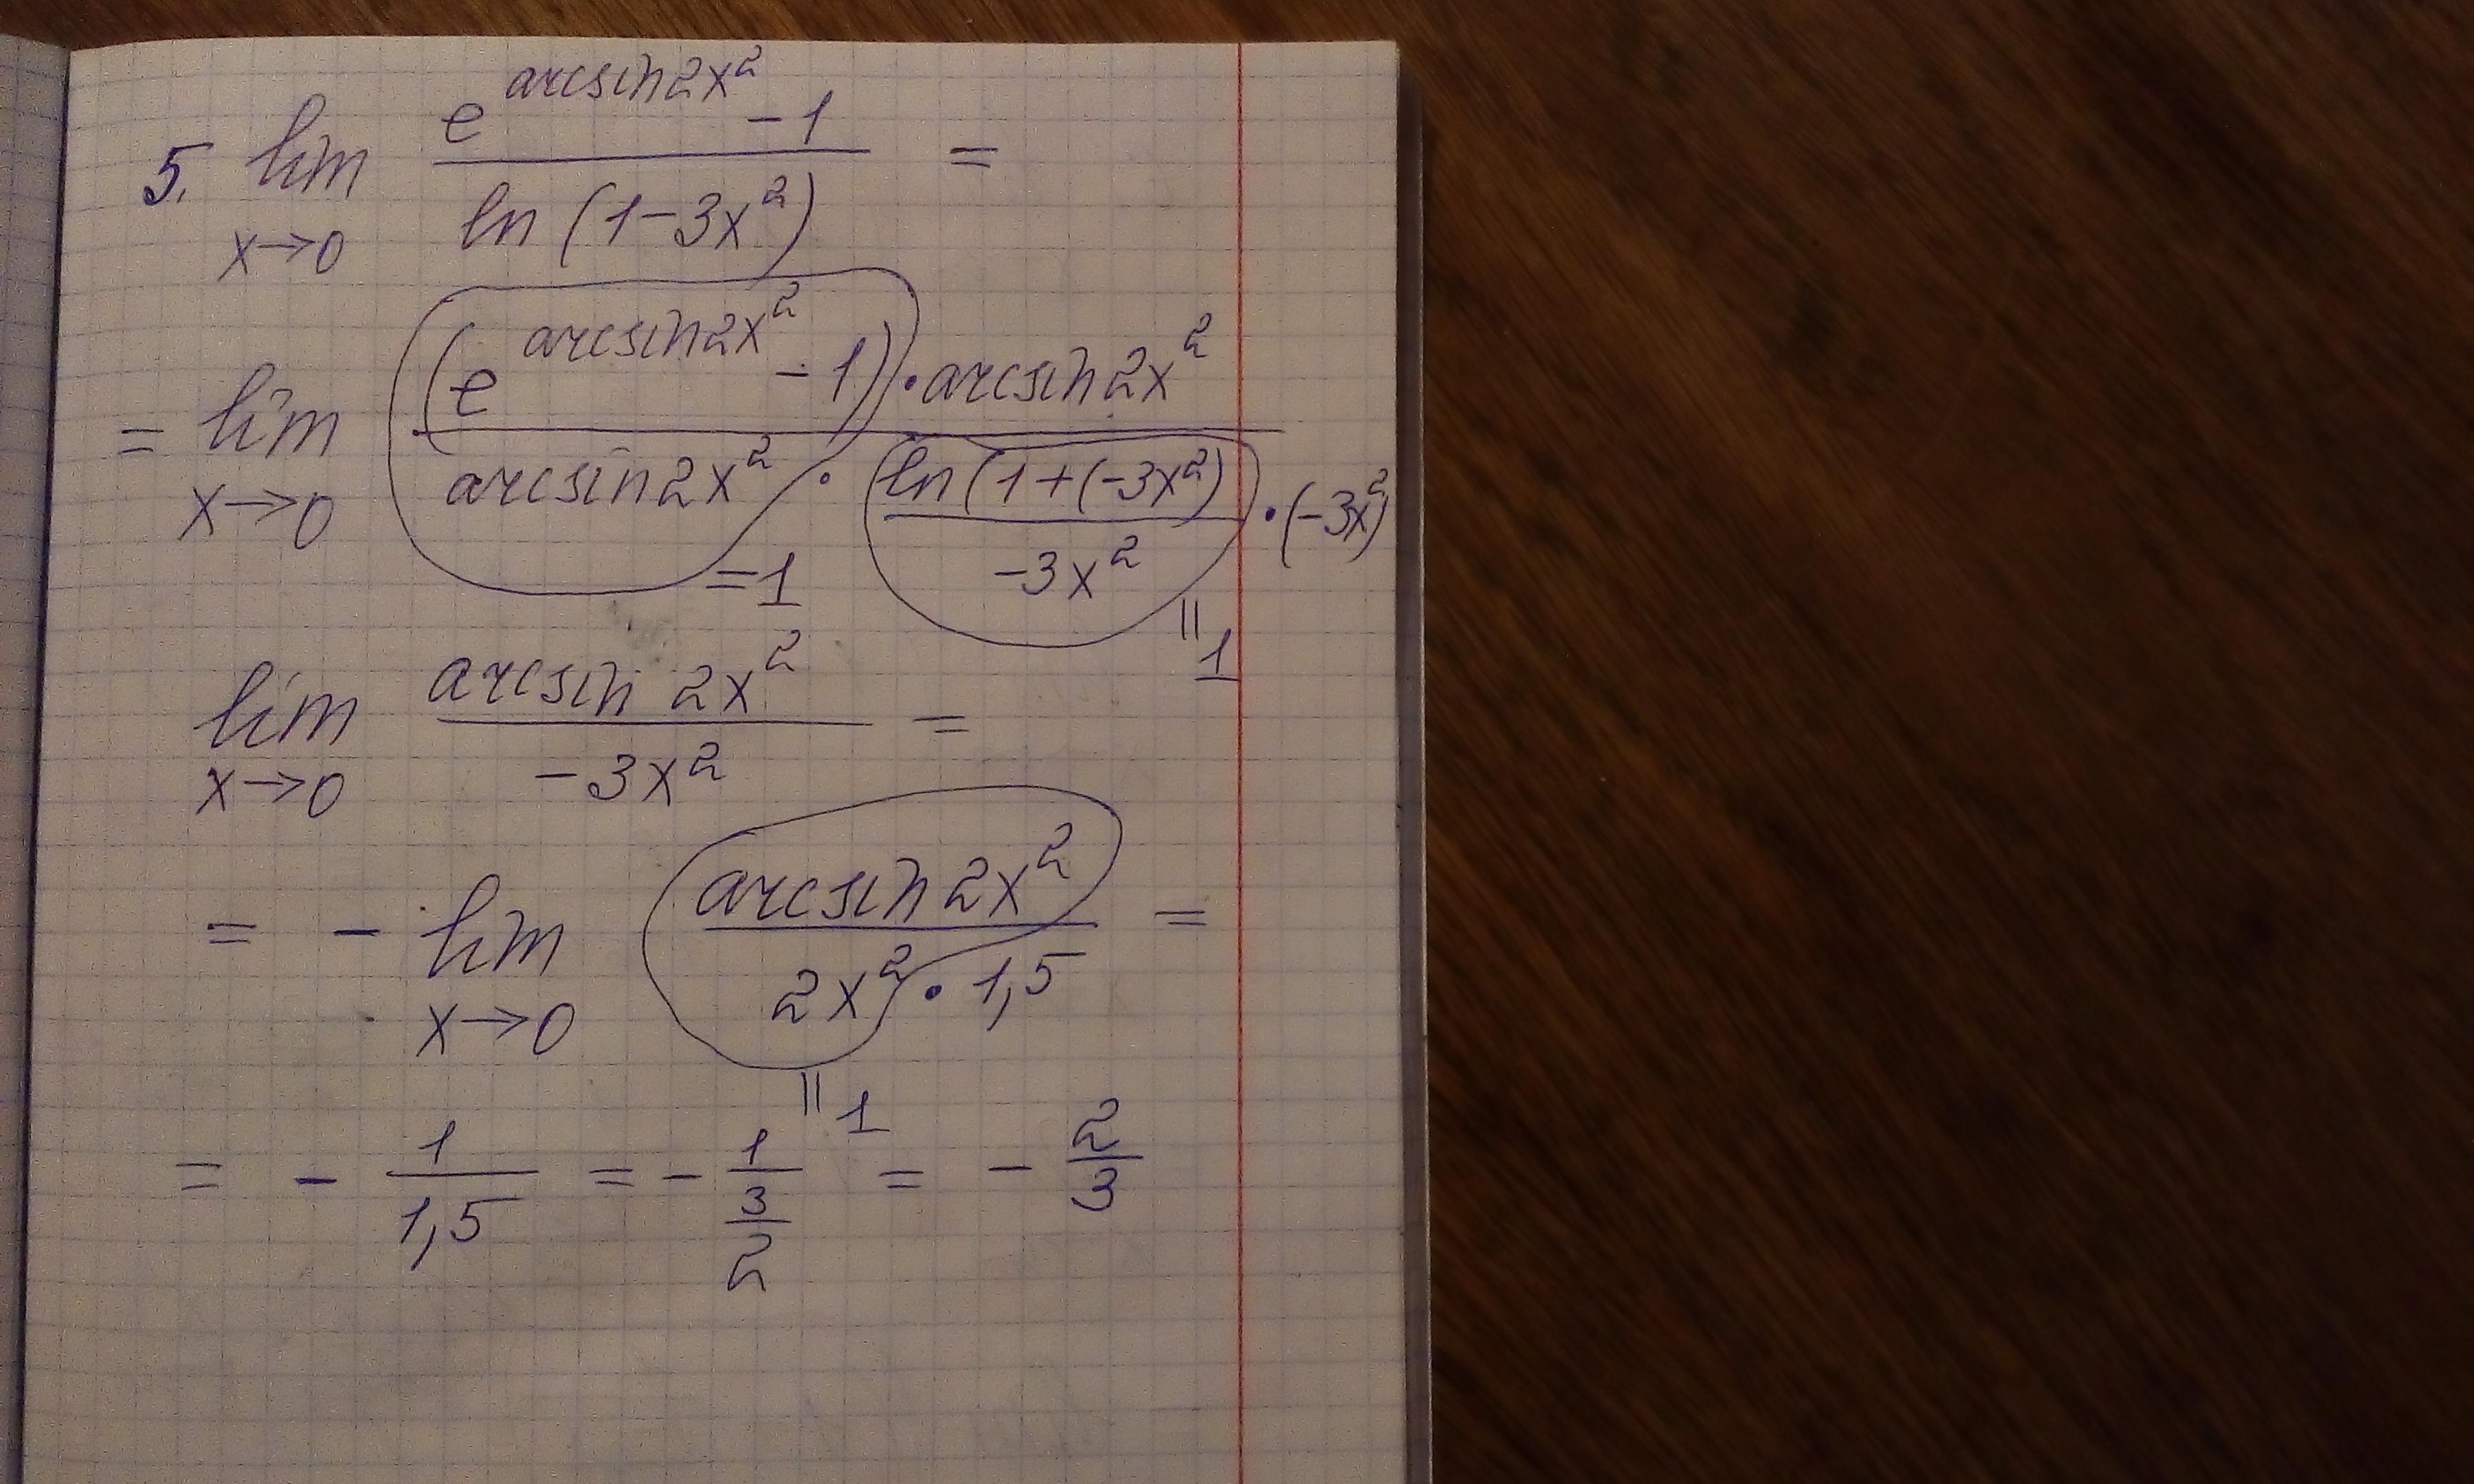 5. lim x→0 (e^(arcsin2x²) - 1) / (ln(1-3x²)) =
= lim x→0 ((e^(arcsin2x²) - 1) · arcsin2x²) / (arcsin2x² · (ln(1+(-3x²)) / (-3x²) · (-3x²))
=1
=1
lim x→0 (arcsin 2x²) / (-3x²) =
= - lim x→0 (arcsin2x²) / (2x² · 1,5) =
=1
= - 1/1,5 = - 1/(3/2) = - 2/3